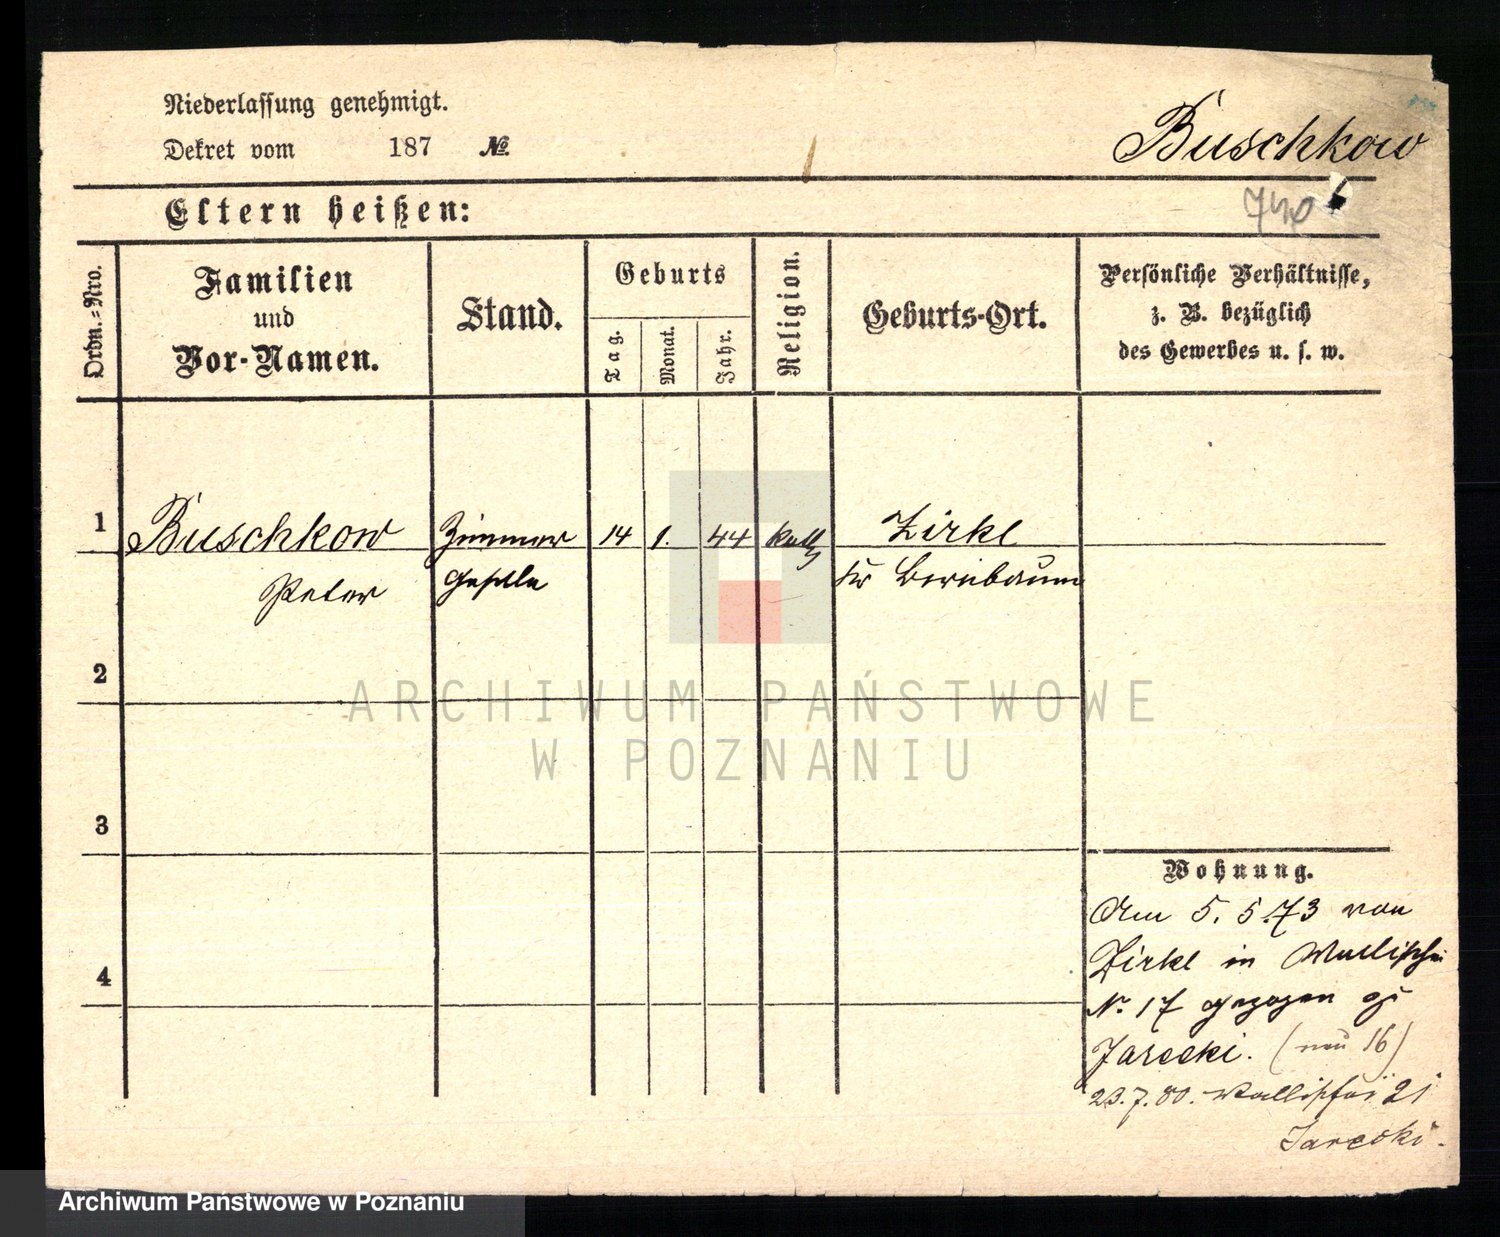 Niederlassung genehmigt.
Dekret vom 187 №
Buschkow
Eltern heißen:
740
Ordn.-Nro.
Familien
und
Vor-Namen.
Stand.
Geburts
Tag.
Monat.
Jahr.
Religion.
Geburts-Ort.
Persönliche Verhältnisse,
z. B. bezüglich
des Gewerbes u. s. w.
1 Buschkow Zimmer 14 1. 44 kath Zirke
Peter geselle Kr Birnbaum
2
ARCHIWUM PAŃSTWOWE
W POZNANIU
3
Wohnung.
Am 5. 5. 73 von
Zirke in Wallischei
N. 17 gezogen zu
Jarecki. (neu 16)
23. 7. 80. Wallischei 21
Jarecki.
4
Archiwum Państwowe w Poznaniu